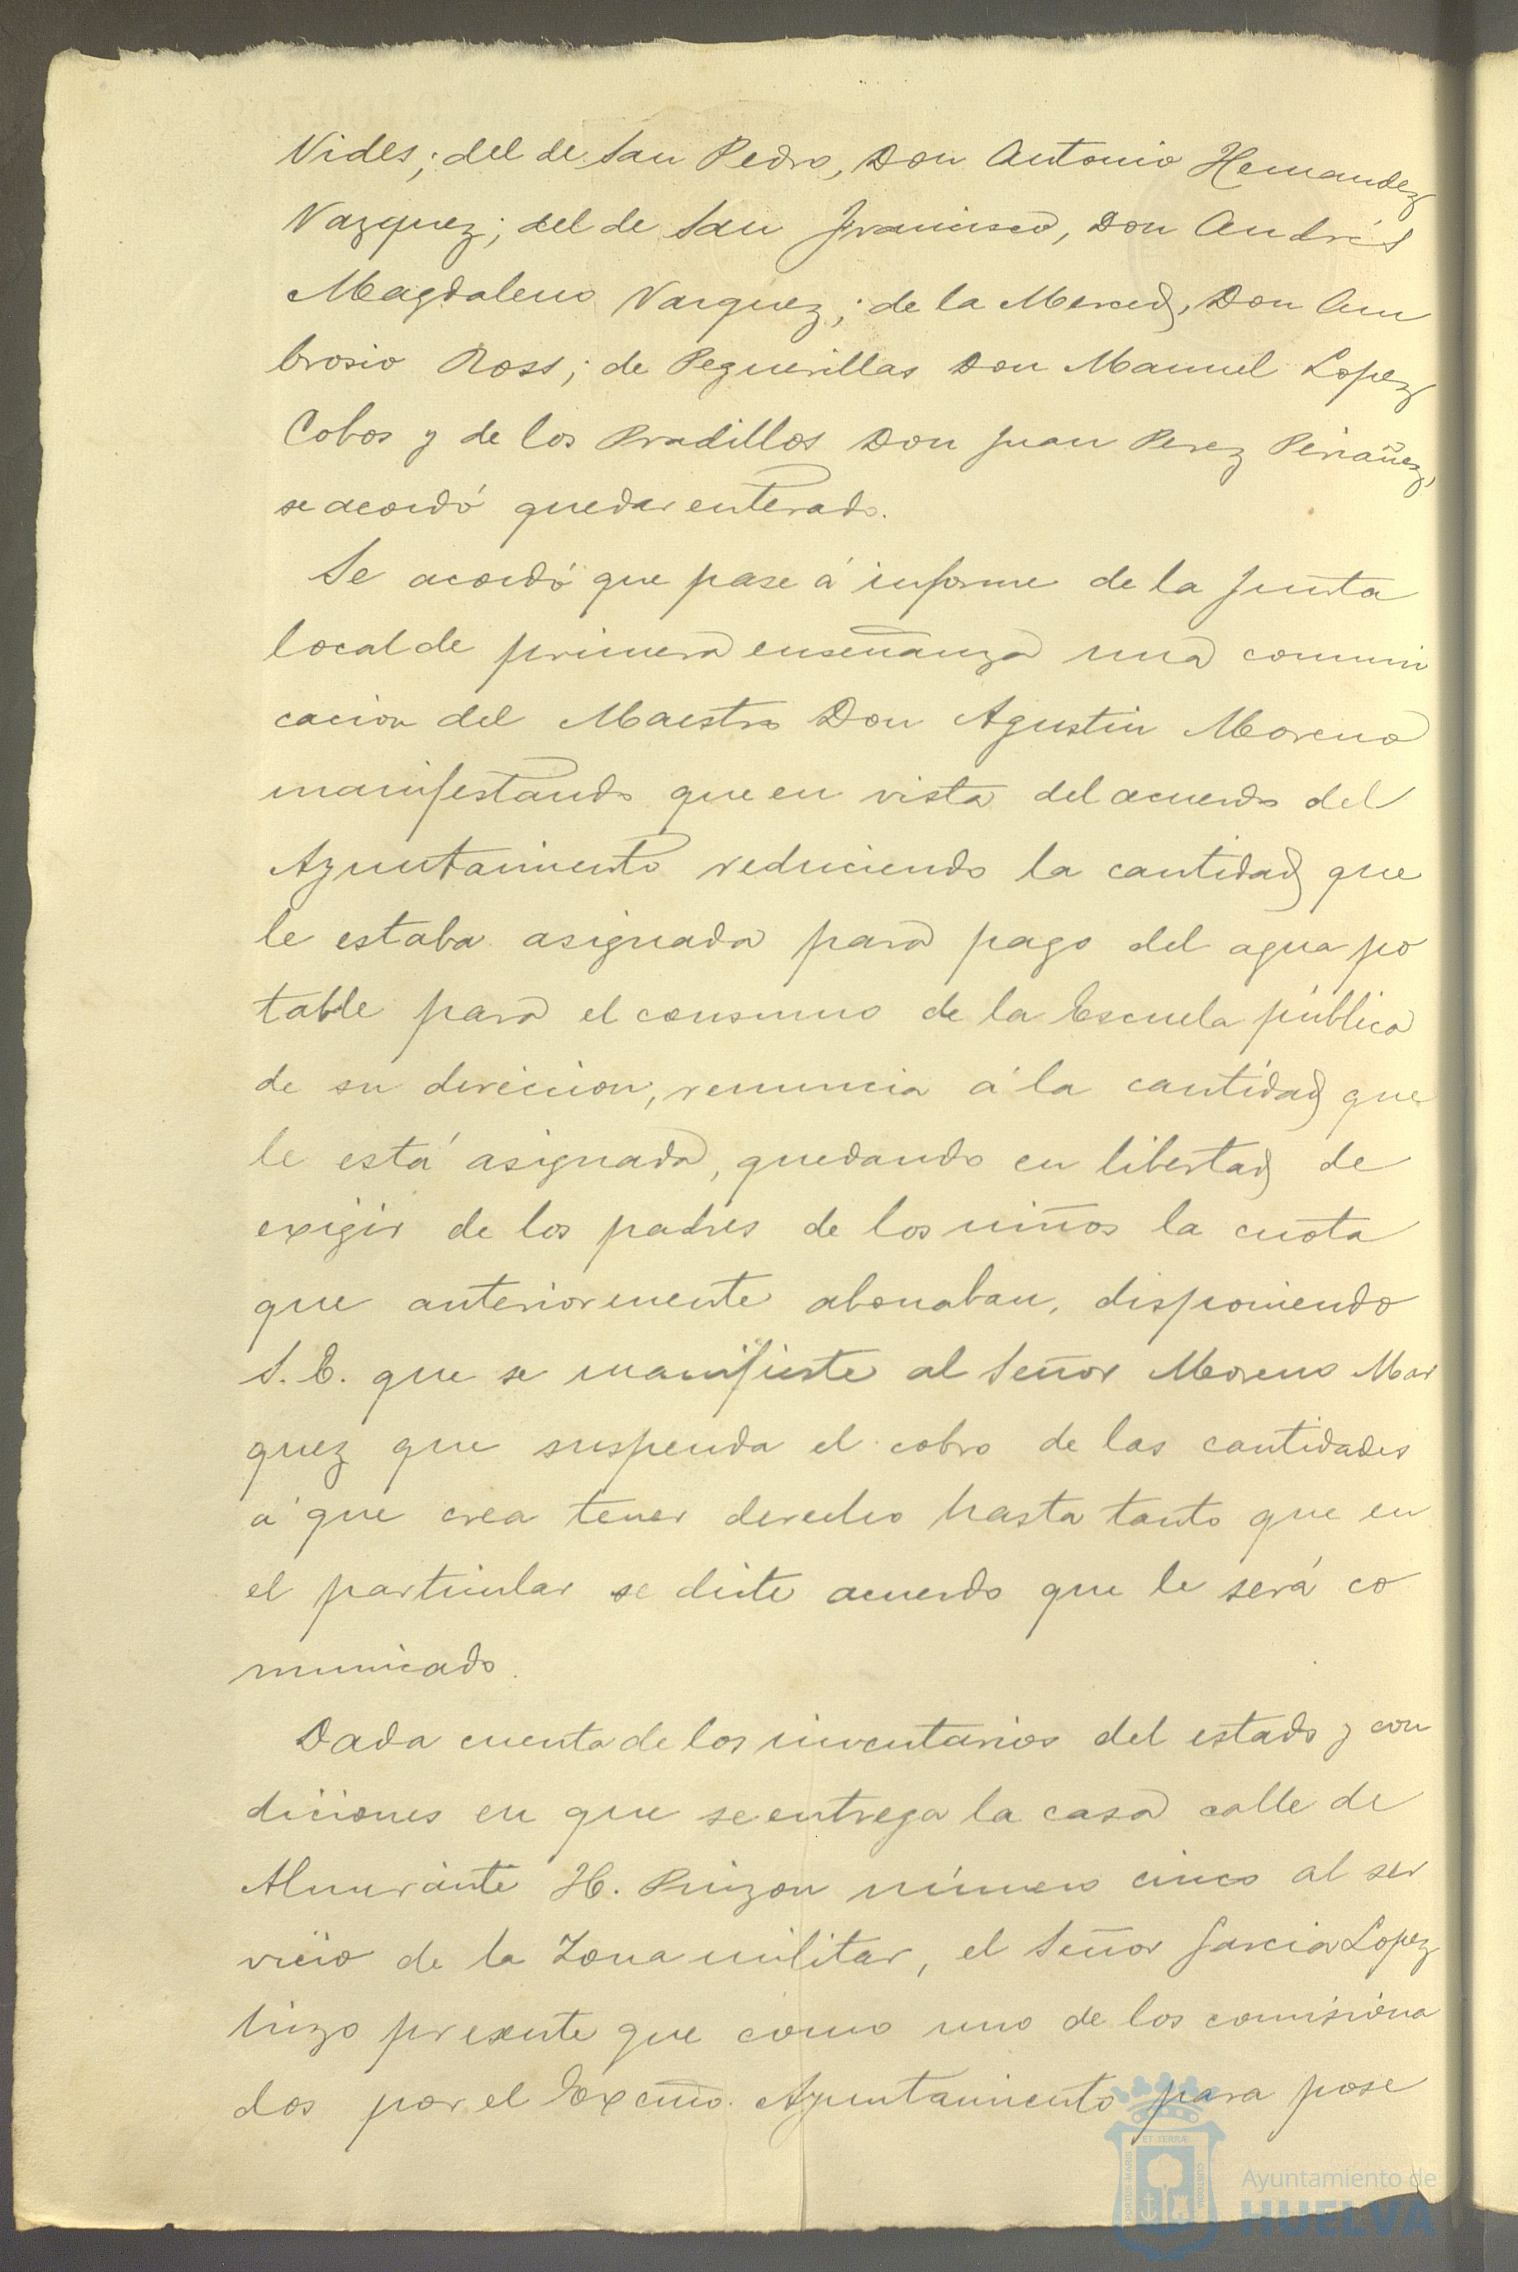 Vides; del de San Pedro, Don Antonio Hernandez
Vazquez; del de San Francisco, Don Andrés
Magdaleno Vazquez; de la Merced, Don Am
brosio Ross; de Peguerillas Don Manuel Lopez
Cobos y de los Pradillos Don Juan Perez Periañez,
se acordó quedar enterado.
Se acordó que pase á informe de la Junta
local de primera enseñanza una comuni
cacion del Maestro Don Agustin Moreno
manifestando que en vista del acuerdo del
Ayuntamiento reduciendo la cantidad que
le estaba asignada para pago del agua po
table para el consumo de la Escuela pública
de su direccion, renuncia á la cantidad que
le está asignada, quedando en libertad de
exigir de los padres de los niños la cuota
que anteriormente abonaban, disponiendo
S.E. que se manifieste al Señor Moreno Mar
quez que suspenda el cobro de las cantidades
á que crea tener derecho hasta tanto que en
el particular se dicte acuerdo que le será co
municado.
Dada cuenta de los inventarios del estado y con
diciones en que se entrega la casa calle de
Almirante H. Pinzon número cinco al ser
vicio de la Zona militar, el Señor Garcia Lopez
hizo presente que como uno de los comisiona
dos por el Excmo. Ayuntamiento para pose
Ayuntamiento de
HUELVA